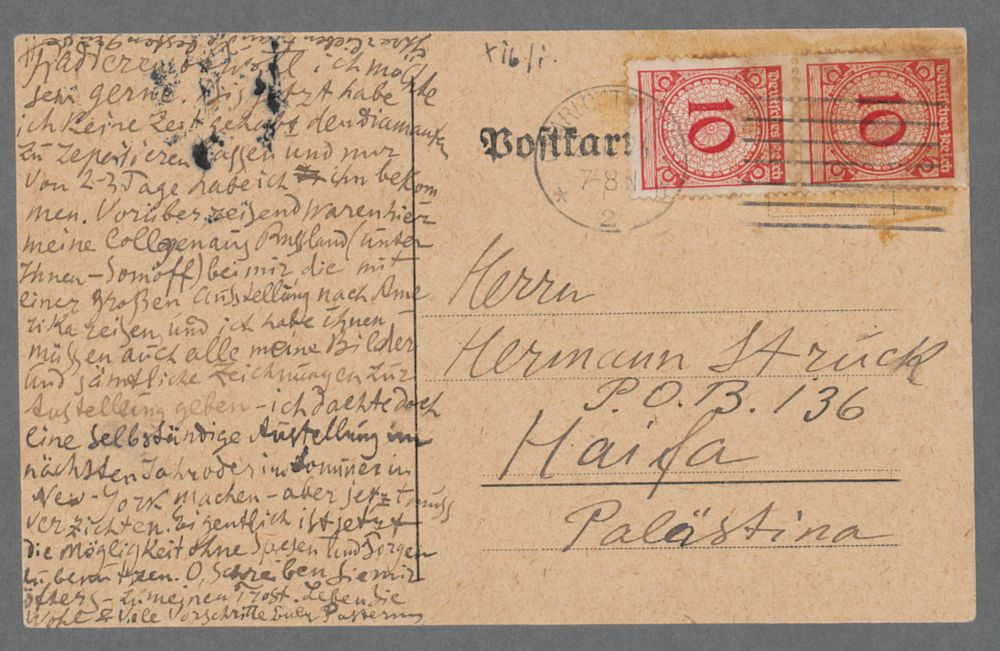 ich möchte
sehr gerne. Bis jetzt habe
ich keine Zeit gehabt den
zu lassen und nur
von 2-3 Tage habe ich ihn bekom
men. Vorüber reisend waren hier
meine Collegen aus Russland (unter
Ihnen - Somoff) bei mir die mit
einer großen Ausstellung nach Ame
rika reisen und ich habe ihnen
müssen auch alle meine Bilder
und sämtliche Zeichnungen zur
Austellung geben - ich dachte doch
eine selbständige Austellung im
nächsten Jahr oder im Sommer in
New-York machen - aber jetzt muss
verzichten. Eigentlich ist jetzt
die Mögligkeit ohne Spesen und Sorgen
zu benutzen. O, Schreiben Sie mir
öfters - zu meinen Trost. Leben Sie
Wohl & Viele Euer Pasternak
x ib/i.
Postkar
7-8 N
2
10
Deutsches Reich
10
Deutsches Reich
Herrn
Hermann Struck
P.O.B. 136
Haifa
Palästina